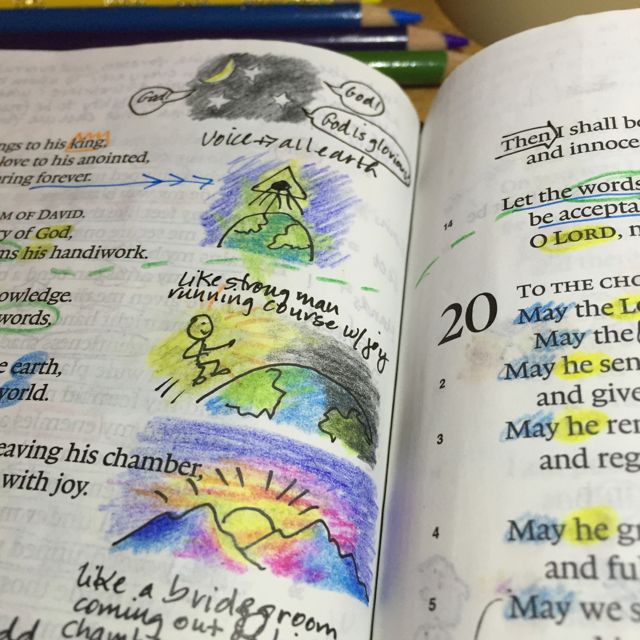 God
God!
God is glorious
voice → all earth
ngs to his king,
love to his anointed,
ring forever.
M OF DAVID.
ry of God,
ms his handiwork.
like strong man
running course w/ joy
owledge.
words,
e earth,
world.
eaving his chamber,
with joy.
like a bridegroom
coming out
Then I shall be
and innoce
14 Let the words
be accepta
O LORD, m
20 TO THE CHO
May the LO
May the
2 May he sen
and give
3 May he rem
and reg
4 May he gr
and ful
5 May we s